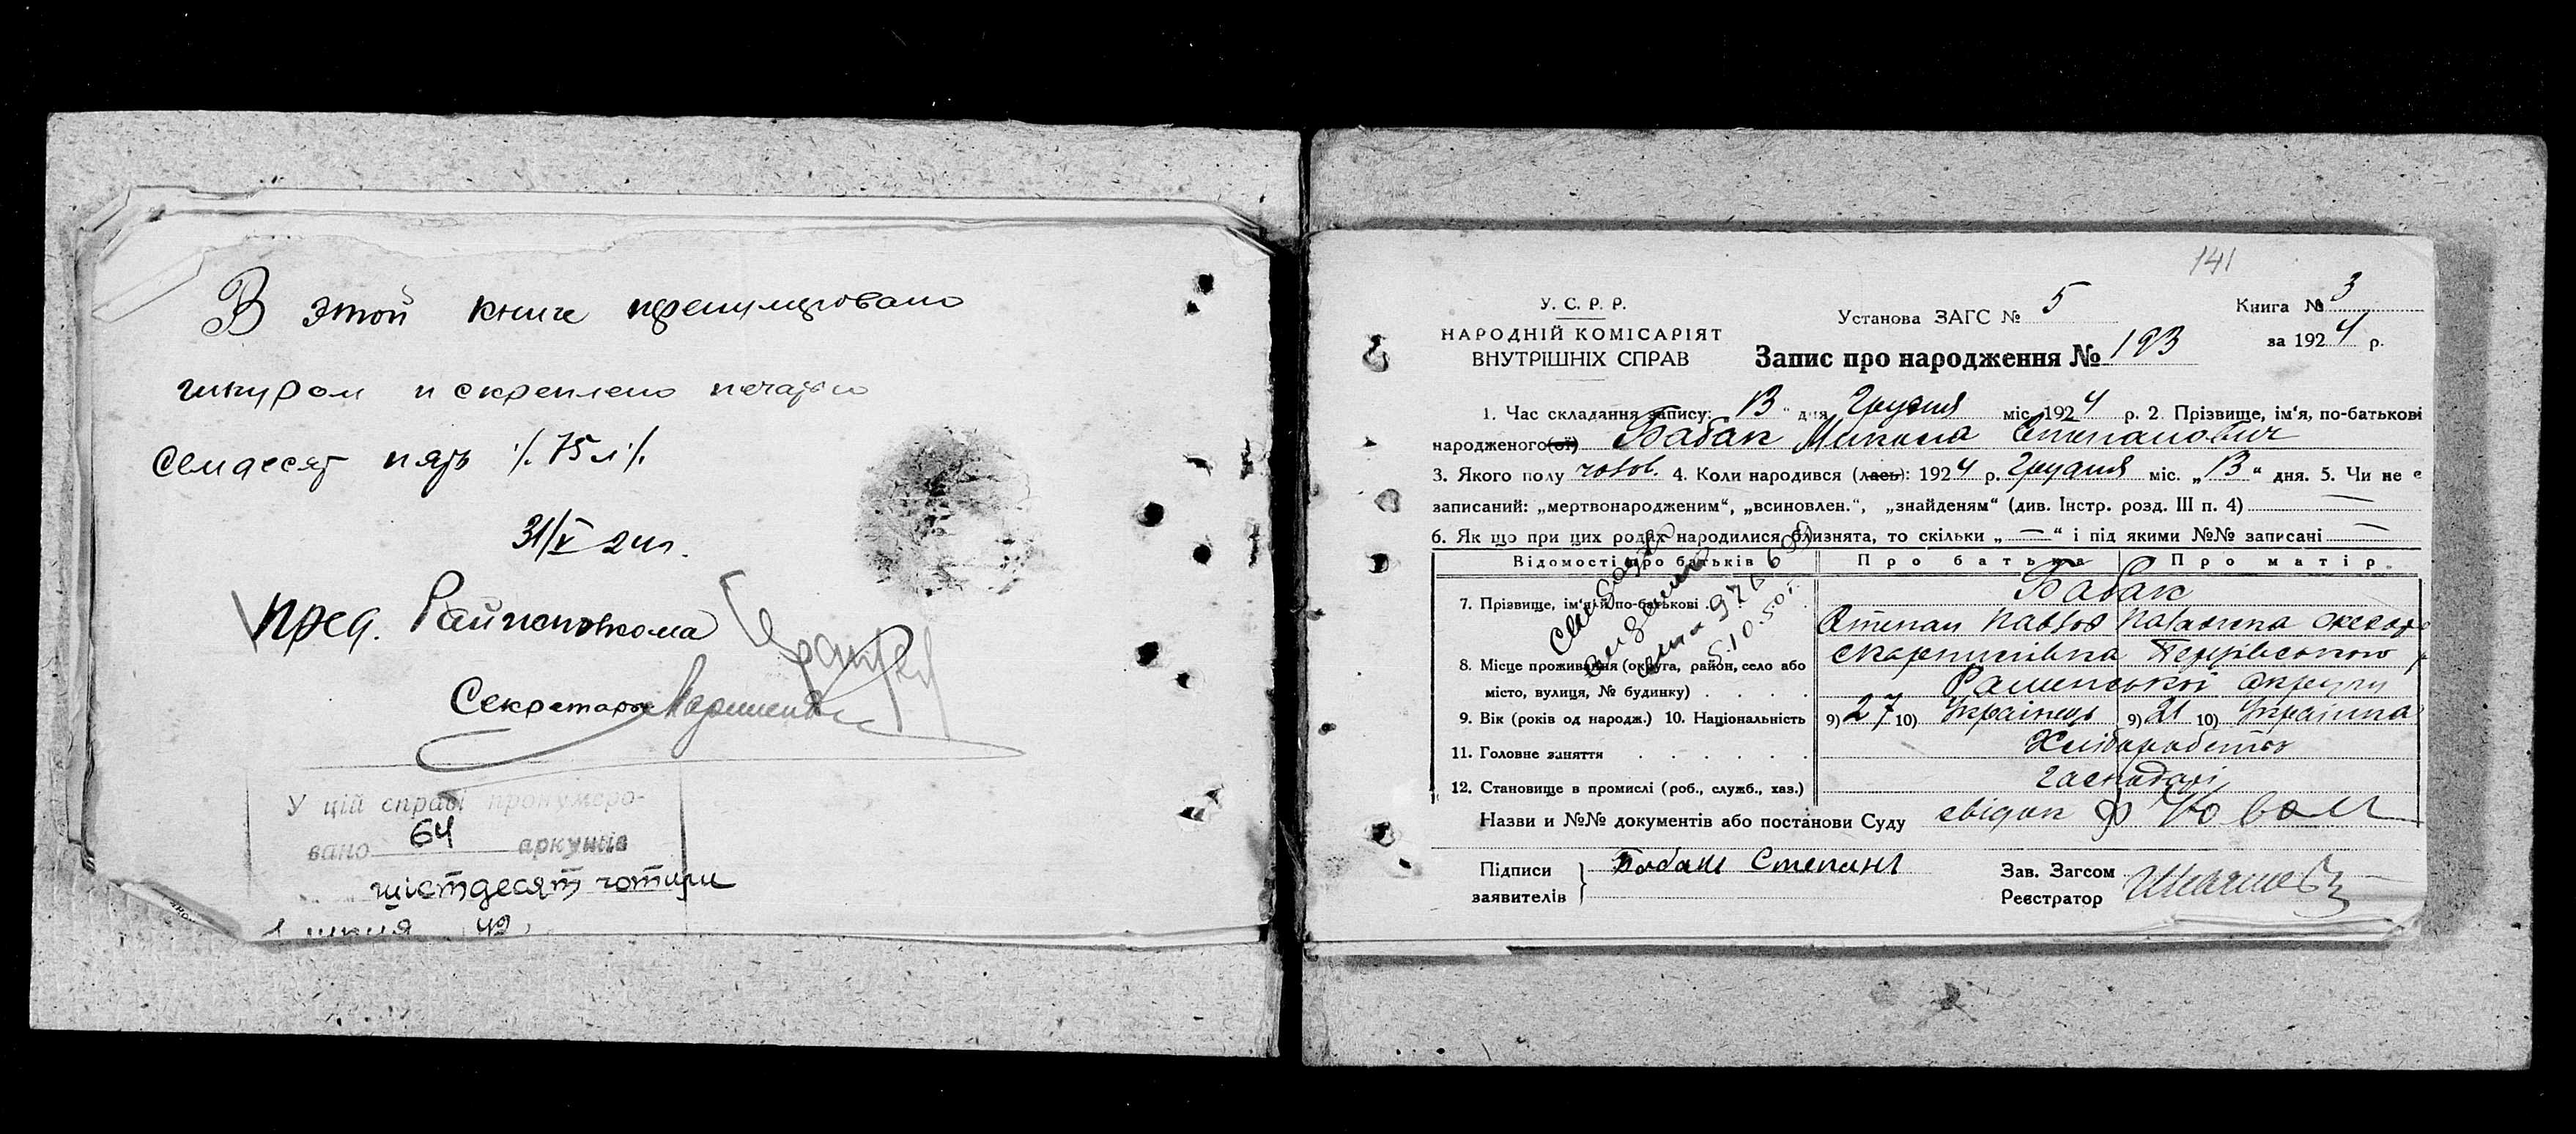 В этой книге пренумеровано
шнуром и скреплено печатью
Семдесят пять /. 75 л /.
31/V 24 г.
Пред. Райисполкома
Секретарь
У цій справі пронумеро-
вано 64 аркушів
шістдесят чотири
42
141
У. С. Р. Р.
НАРОДНІЙ КОМІСАРІЯТ
ВНУТРІШНІХ СПРАВ
Установа ЗАГС № 5
Книга № 3
за 1924 р.
Запис про народження № 193
1. Час складання запису: 13 " дня Грудня міс. 1924 р. 2. Прізвище, ім'я, по-батькові
народженого(ої) Бабак Микола Степанович
3. Якого полу чолов. 4. Коли народився (лась): 1924 р. Грудня міс. „ 13 “ дня. 5. Чи не є
записаний: „мертвонародженим“, „всиновлен.“, „знайденям“ (див. Інстр. розд. III п. 4) —
6. Як що при цих родах народилися близнята, то скільки „ — “ і під якими №№ записані —
Відомості про батьків Про батька Про матір
7. Прізвище, ім'я й по-батькові . Бабак
Степан Павлов Наталія
8. Місце проживання (округа, район, село або
місто, вулиця, № будинку) . . . . Роменської округи
5.10.50 г.
9. Вік (років од народж.) 10. Національність 9) 27 10) Українець 9) 21 10) Українка
11. Головне заняття . . . . . . Хліборобство
12. Становище в промислі (роб., служб., хаз.) Господарі
Назви и №№ документів або постанови Суду свідок
Підписи заявителів } Бабак Степан
Зав. Загсом
Реєстратор